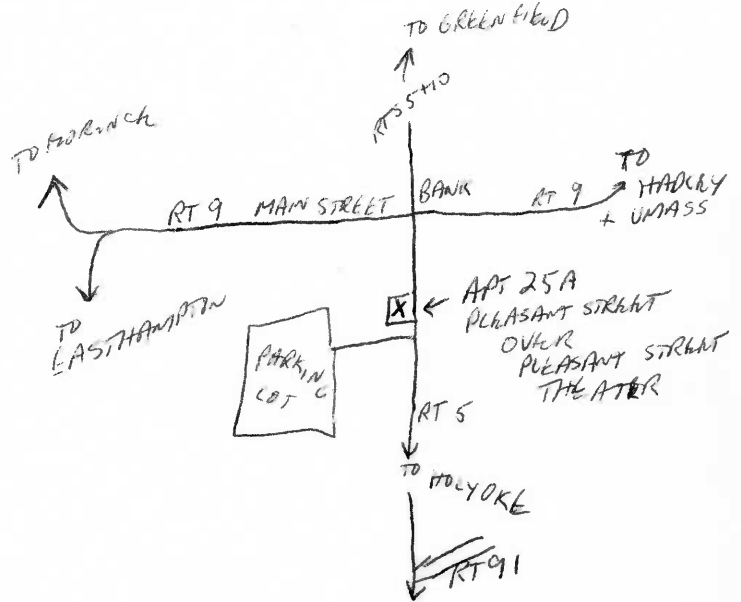 TO GREENFIELD
RTS 5+10
TO
TO
HADLEY
+ UMASS
RT 9 MAIN STREET
BANK
RT 9
TO
EASTHAMPTON
X
APT 25A
PLEASANT STREET
OVER
PLEASANT STREET
THEATER
PARKIN
LOT C
RT 5
TO HOLYOKE
RT 91